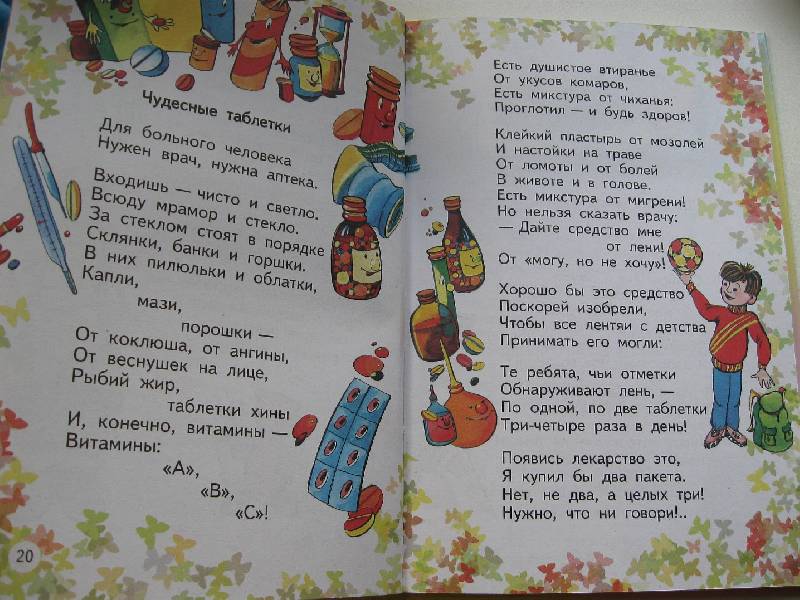 Чудесные таблетки
Для больного человека
Нужен врач, нужна аптека.
Входишь — чисто и светло.
Всюду мрамор и стекло.
За стеклом стоят в порядке
Склянки, банки и горшки.
В них пилюльки и облатки,
Капли,
мази,
порошки —
От коклюша, от ангины,
От веснушек на лице,
Рыбий жир,
таблетки хины
И, конечно, витамины —
Витамины:
«А»,
«В»,
«С»!
20
Есть душистое втиранье
От укусов комаров,
Есть микстура от чиханья:
Проглотил — и будь здоров!
Клейкий пластырь от мозолей
И настойки на траве
От ломоты и от болей
В животе и в голове.
Есть микстура от мигрени!
Но нельзя сказать врачу:
— Дайте средство мне
от лени!
От «могу, но не хочу»!
Хорошо бы это средство
Поскорей изобрели,
Чтобы все лентяи с детства
Принимать его могли:
Те ребята, чьи отметки
Обнаруживают лень, —
По одной, по две таблетки
Три-четыре раза в день!
Появись лекарство это,
Я купил бы два пакета.
Нет, не два, а целых три!
Нужно, что ни говори!..